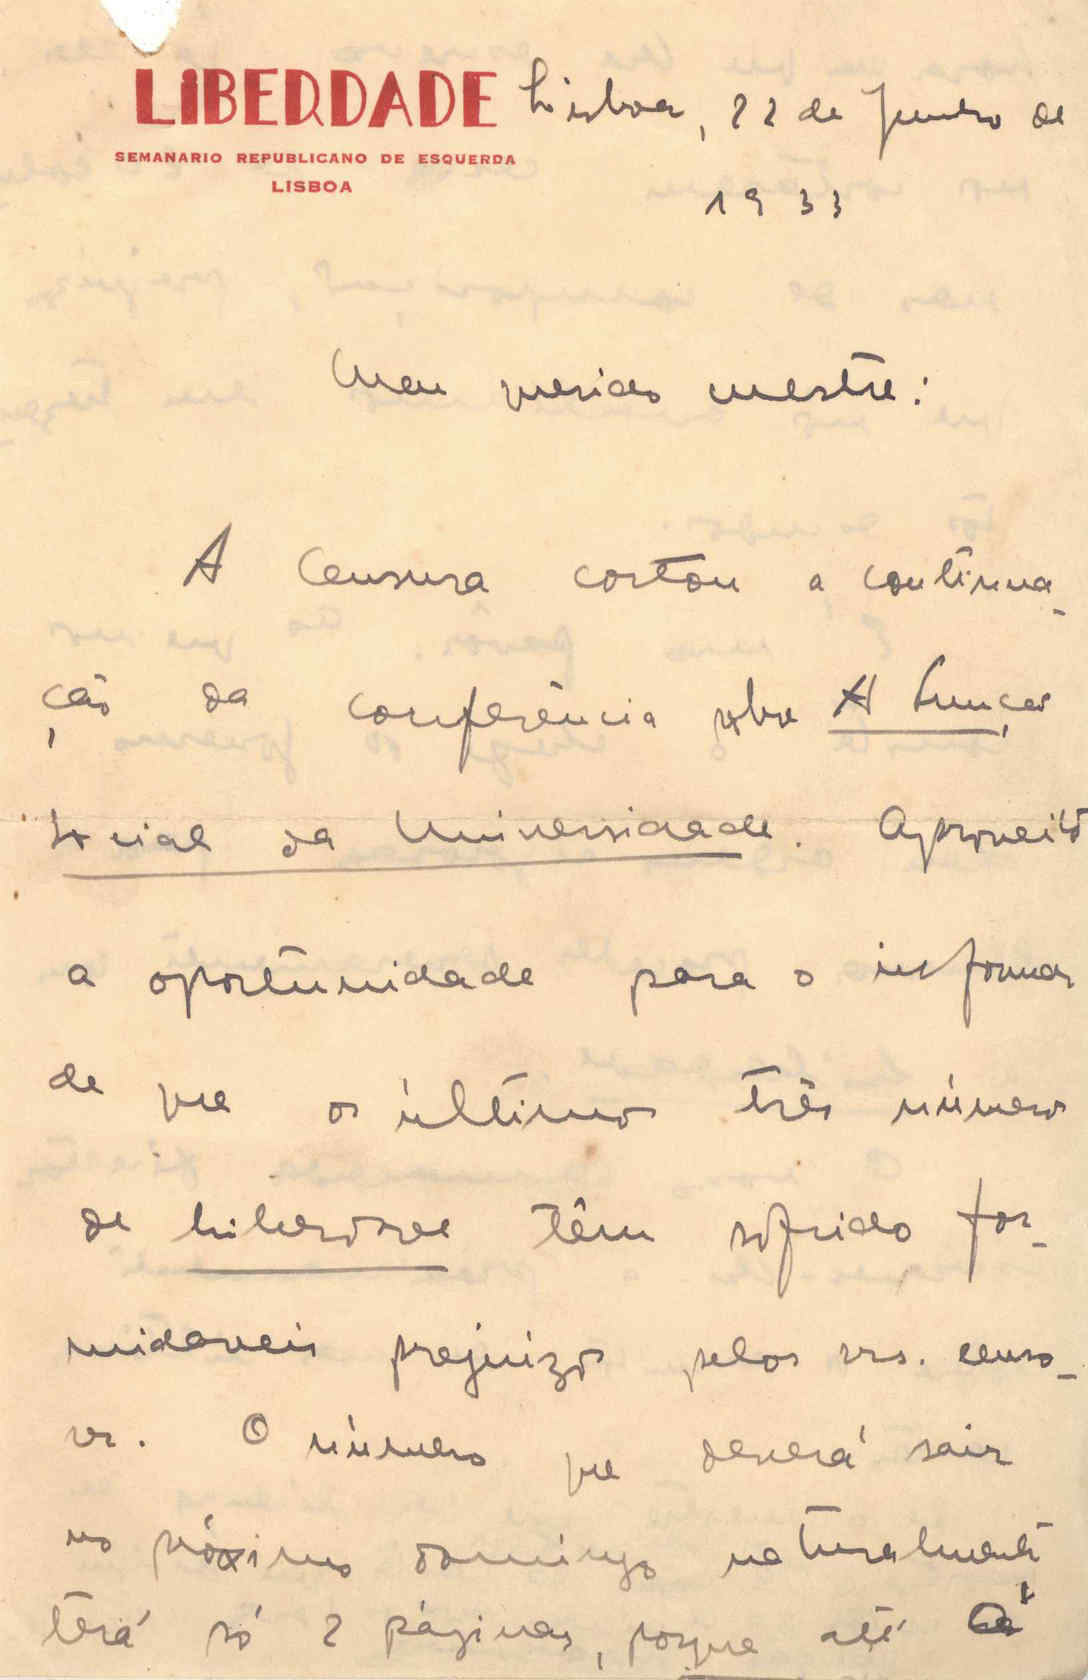 LIBERDADE
SEMANARIO REPUBLICANO DE ESQUERDA
LISBOA
Lisboa, 22 de Junho de
1933
Meu querido mestre:
A Censura cortou a continua-
ção da conferência sobre A Função
Social da Universidade. Aproveito
a oportunidade para o informar
de que os últimos três números
de Liberdade têm sofrido for-
midaveis prejuizos pelos srs. censo-
res. O número que deverá sair
no próximo domingo naturalmente
terá só 2 páginas, porque até